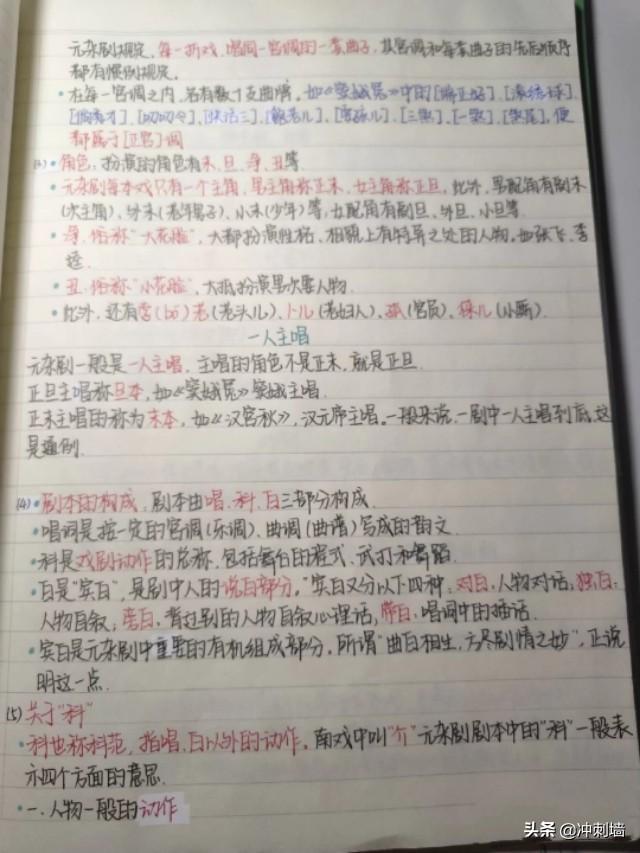 元杂剧规定,每一折戏,唱同一宫调的一套曲子,其宫调和每套曲子的先后顺序
都有惯例规定。
• 在每一宫调之内,各有数十支曲牌。如《窦娥冤》中的[端正好]、[滚绣球]、
[倘秀才]、[叨叨令]、[快活三]、[鲍老儿]、[耍孩儿]、[二煞]、[一煞]、[煞尾],便
都属于[正宫]调
(3)• 角色,扮演的角色有末、旦、净、丑等
• 元杂剧每本戏只有一个主角,男主角称正末,女主角称正旦,此外,男配角有副末
(次主角)、外末(老年男子)、小末(少年)等,女配角有副旦、外旦、小旦等
• 净,俗称"大花脸",大都扮演性格、相貌上有特异之处的人物。如张飞、李
逵
• 丑,俗称"小花脸",大抵扮演男次要人物
• 此外,还有孛(bó)老(老头儿)、卜儿(老妇人)、孤(官员)、徕儿(小厮)
一人主唱
元杂剧一般是一人主唱,主唱的角色不是正末,就是正旦
正旦主唱称旦本,如《窦娥冤》窦娥主唱
正末主唱的称为末本,如《汉宫秋》,汉元帝主唱。一般来说,一剧中一人主唱到底,这
是通例
(4)• 剧本的构成,剧本由唱、科、白三部分构成
• 唱词是按一定的宫调(乐调)、曲调(曲谱)写成的韵文
• 科是戏剧动作的总称,包括舞台的程式、武打和舞蹈
• 白是"宾白",是剧中人的说白部分。"宾白又分以下四种:对白,人物对话;独白:
人物自叙;旁白,背过别的人物自叙心理话,带白,唱词中的插话
• 宾白是元杂剧中重要的有机组成部分,所谓"曲白相生,方尽剧情之妙",正说
明这一点
(5)关于"科"
• 科也称科范,指唱、白以外的动作。南戏中叫"介"元杂剧剧本中的"科"一般表
示四个方面的意思
• 一、人物一般的动作
头条 @冲刺墙